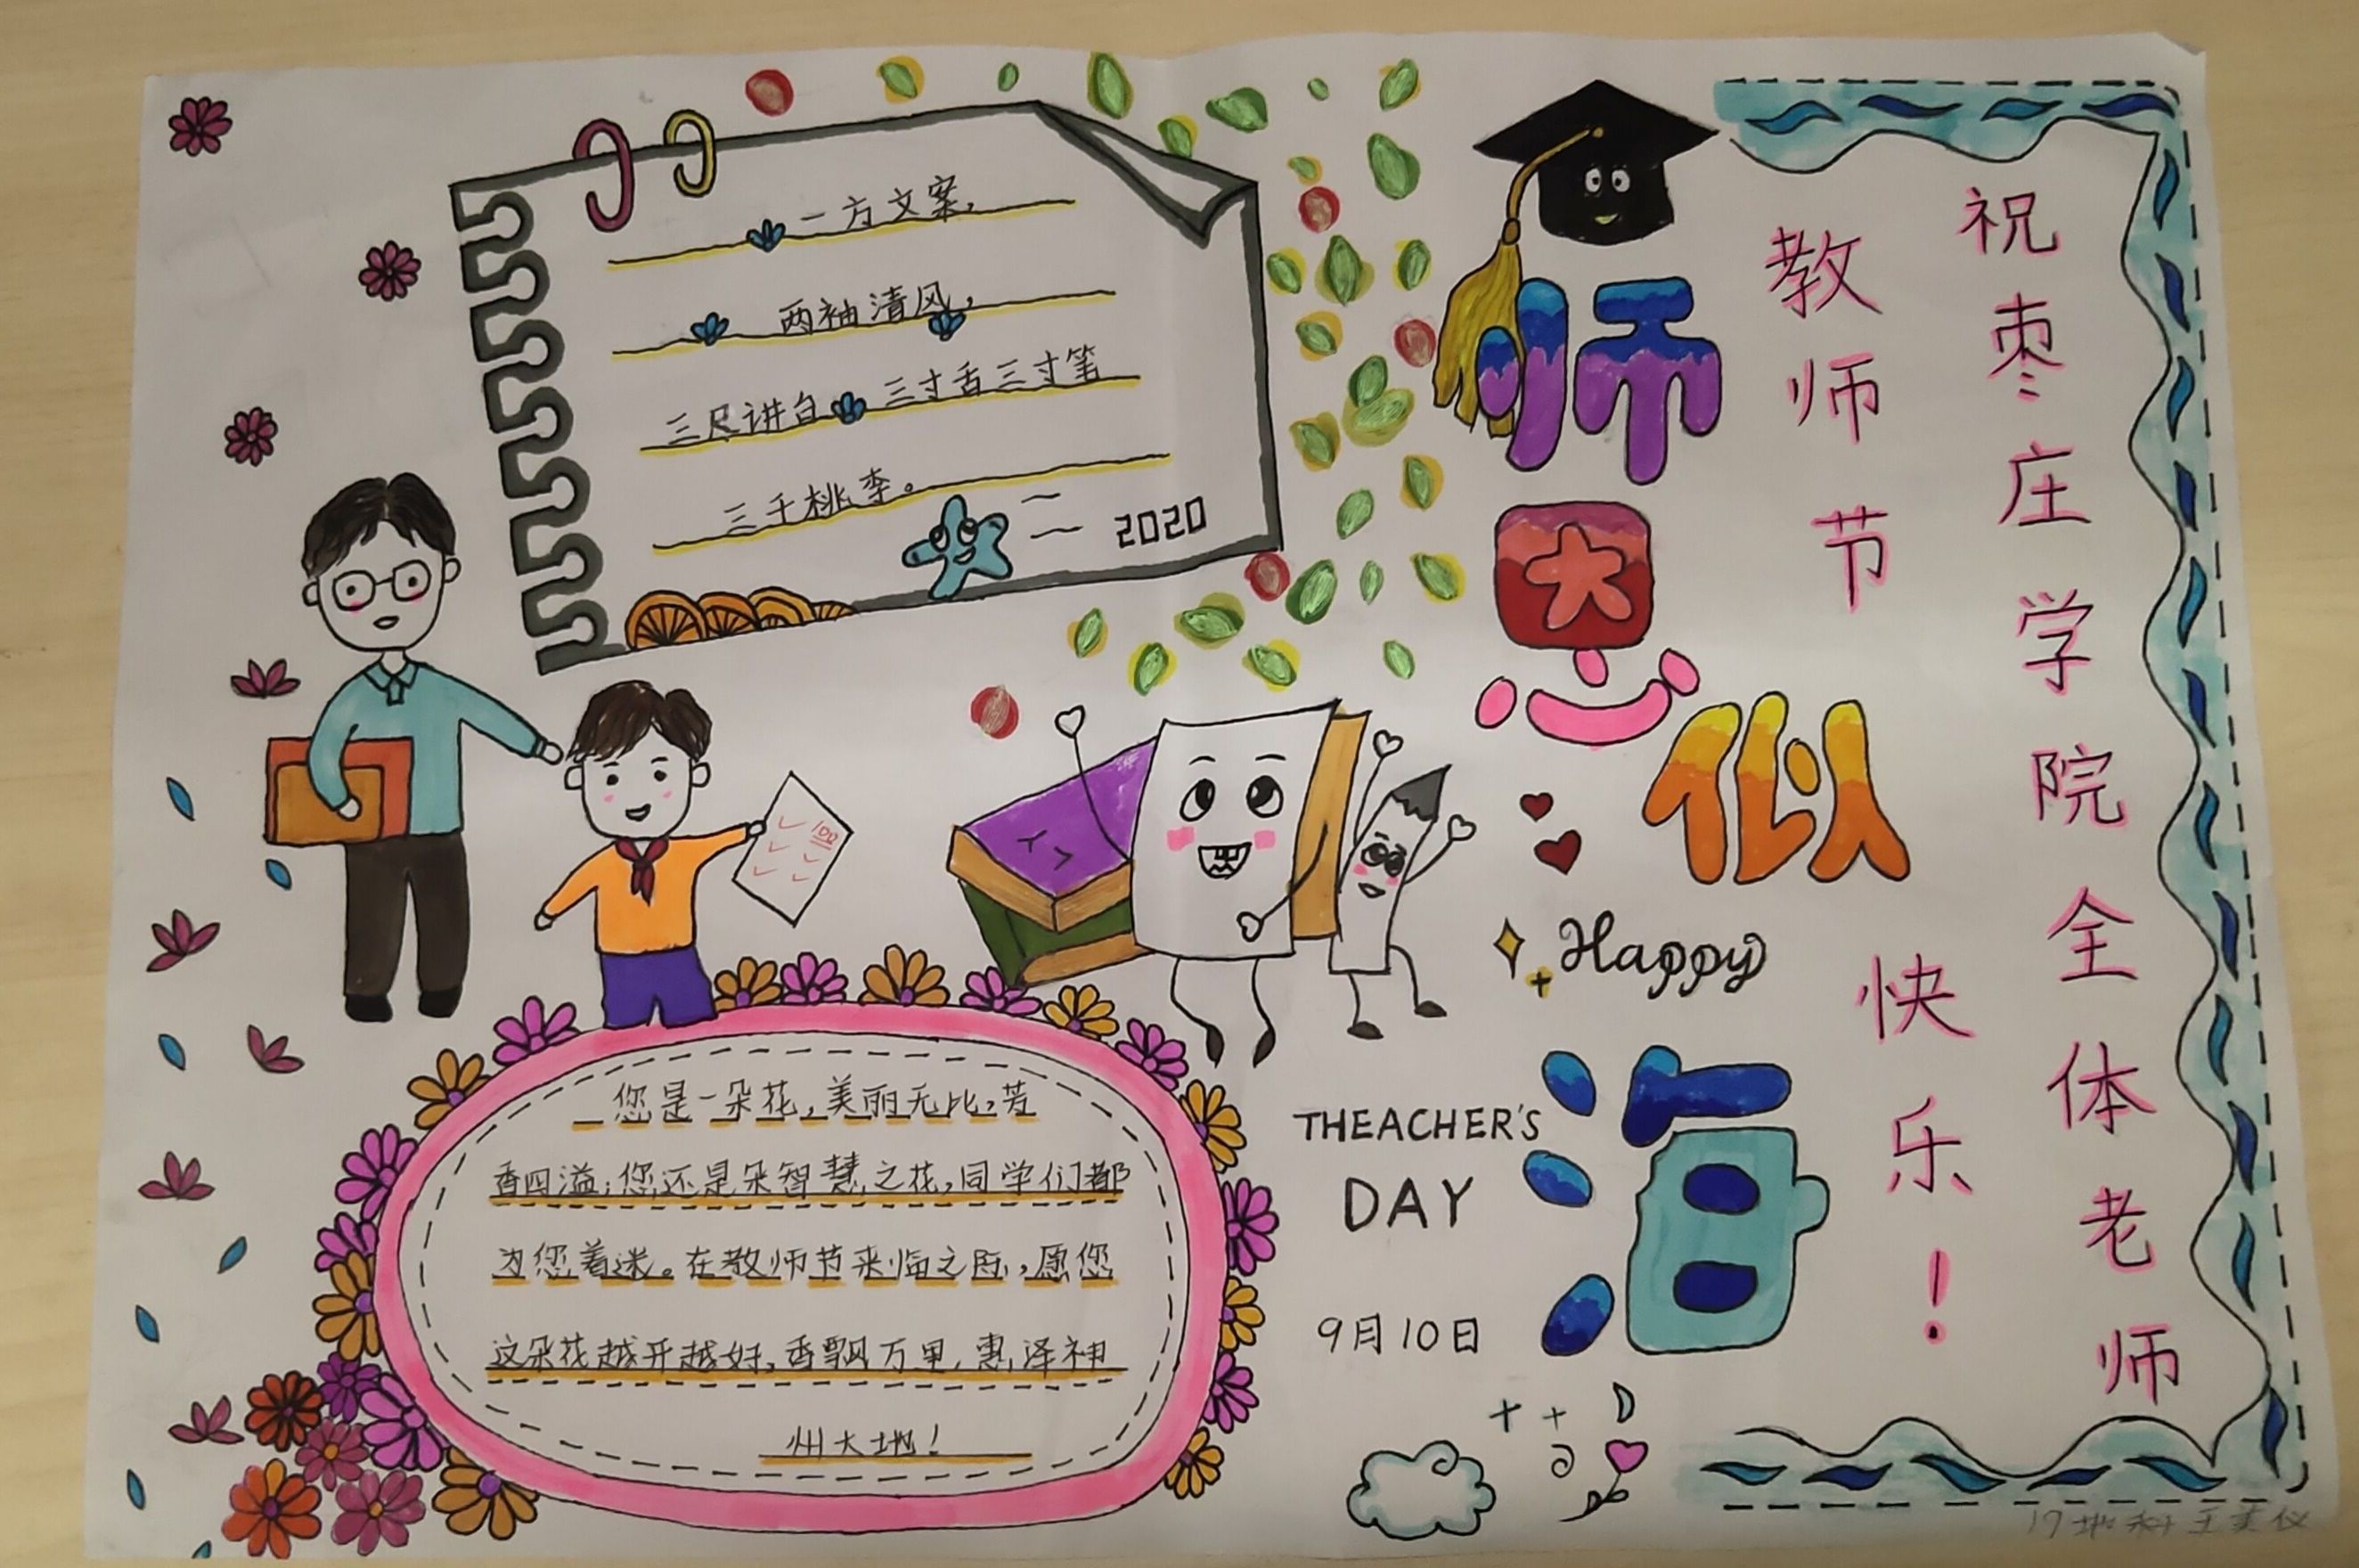 一方文案,
两袖清风,
三尺讲台 三寸舌三寸笔
三千桃李。
2020
100
您是一朵花,美丽无比,芳
香四溢;您还是朵智慧之花,同学们都
为您着迷。在教师节来临之际,愿您
这朵花越开越好,香飘万里,惠泽神
州大地!
师恩似海
Happy
THEACHER'S
DAY
9月10日
祝枣庄学院全体老师
教师节快乐!
17地科王美仪